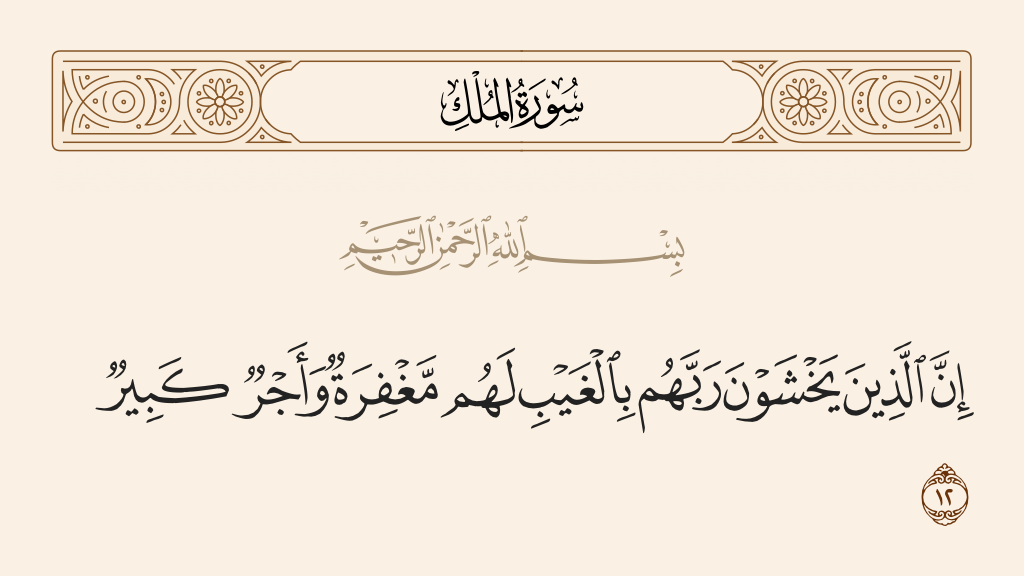 سُورَةُ المُلْكِ
بِسْمِ ٱللَّهِ ٱلرَّحْمَٰنِ ٱلرَّحِيمِ
إِنَّ ٱلَّذِينَ يَخْشَوْنَ رَبَّهُم بِٱلْغَيْبِ لَهُم مَّغْفِرَةٌ وَأَجْرٌ كَبِيرٌ
١٢